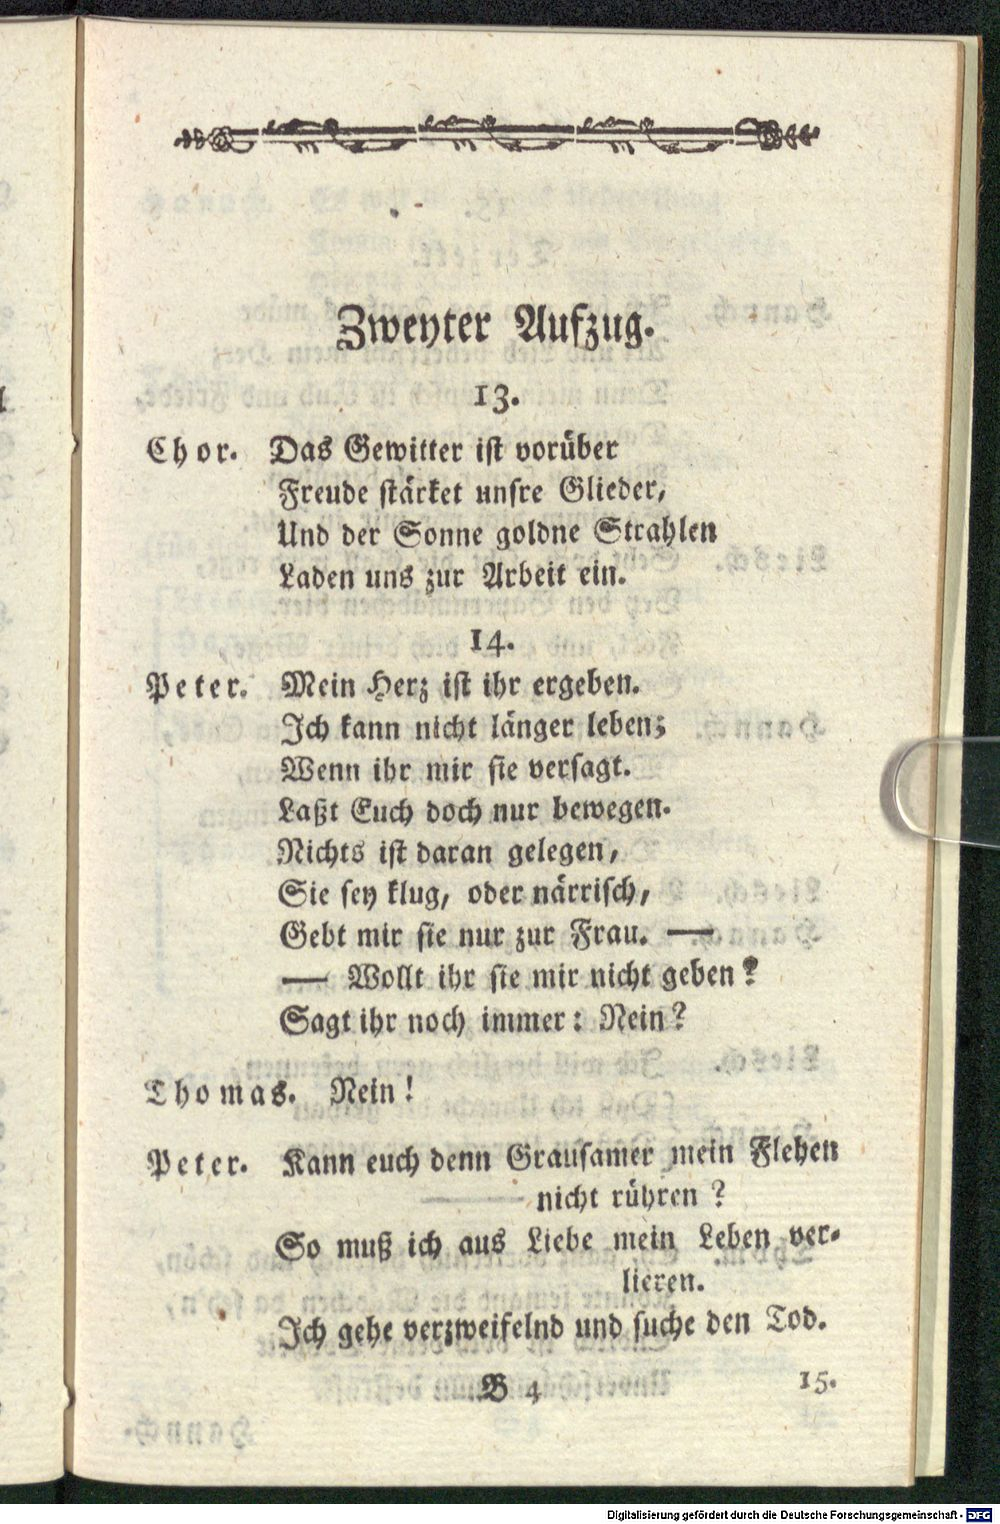 Zweyter Aufzug.
13.
Chor. Das Gewitter ist vorüber
Freude stärket unsre Glieder,
Und der Sonne goldne Strahlen
Laden uns zur Arbeit ein.
14.
Peter. Mein Herz ist ihr ergeben.
Ich kann nicht länger leben;
Wenn ihr mir sie versagt.
Laßt Euch doch nur bewegen.
Nichts ist daran gelegen,
Sie sey klug, oder närrisch,
Gebt mir sie nur zur Frau. —
— Wollt ihr sie mir nicht geben?
Sagt ihr noch immer: Nein?
Thomas. Nein!
Peter. Kann euch denn Grausamer mein Flehen
nicht rühren?
So muß ich aus Liebe mein Leben ver-
lieren.
Ich gehe verzweifelnd und suche den Tod.
B 4 15.
Digitalisierung gefördert durch die Deutsche Forschungsgemeinschaft - DFG